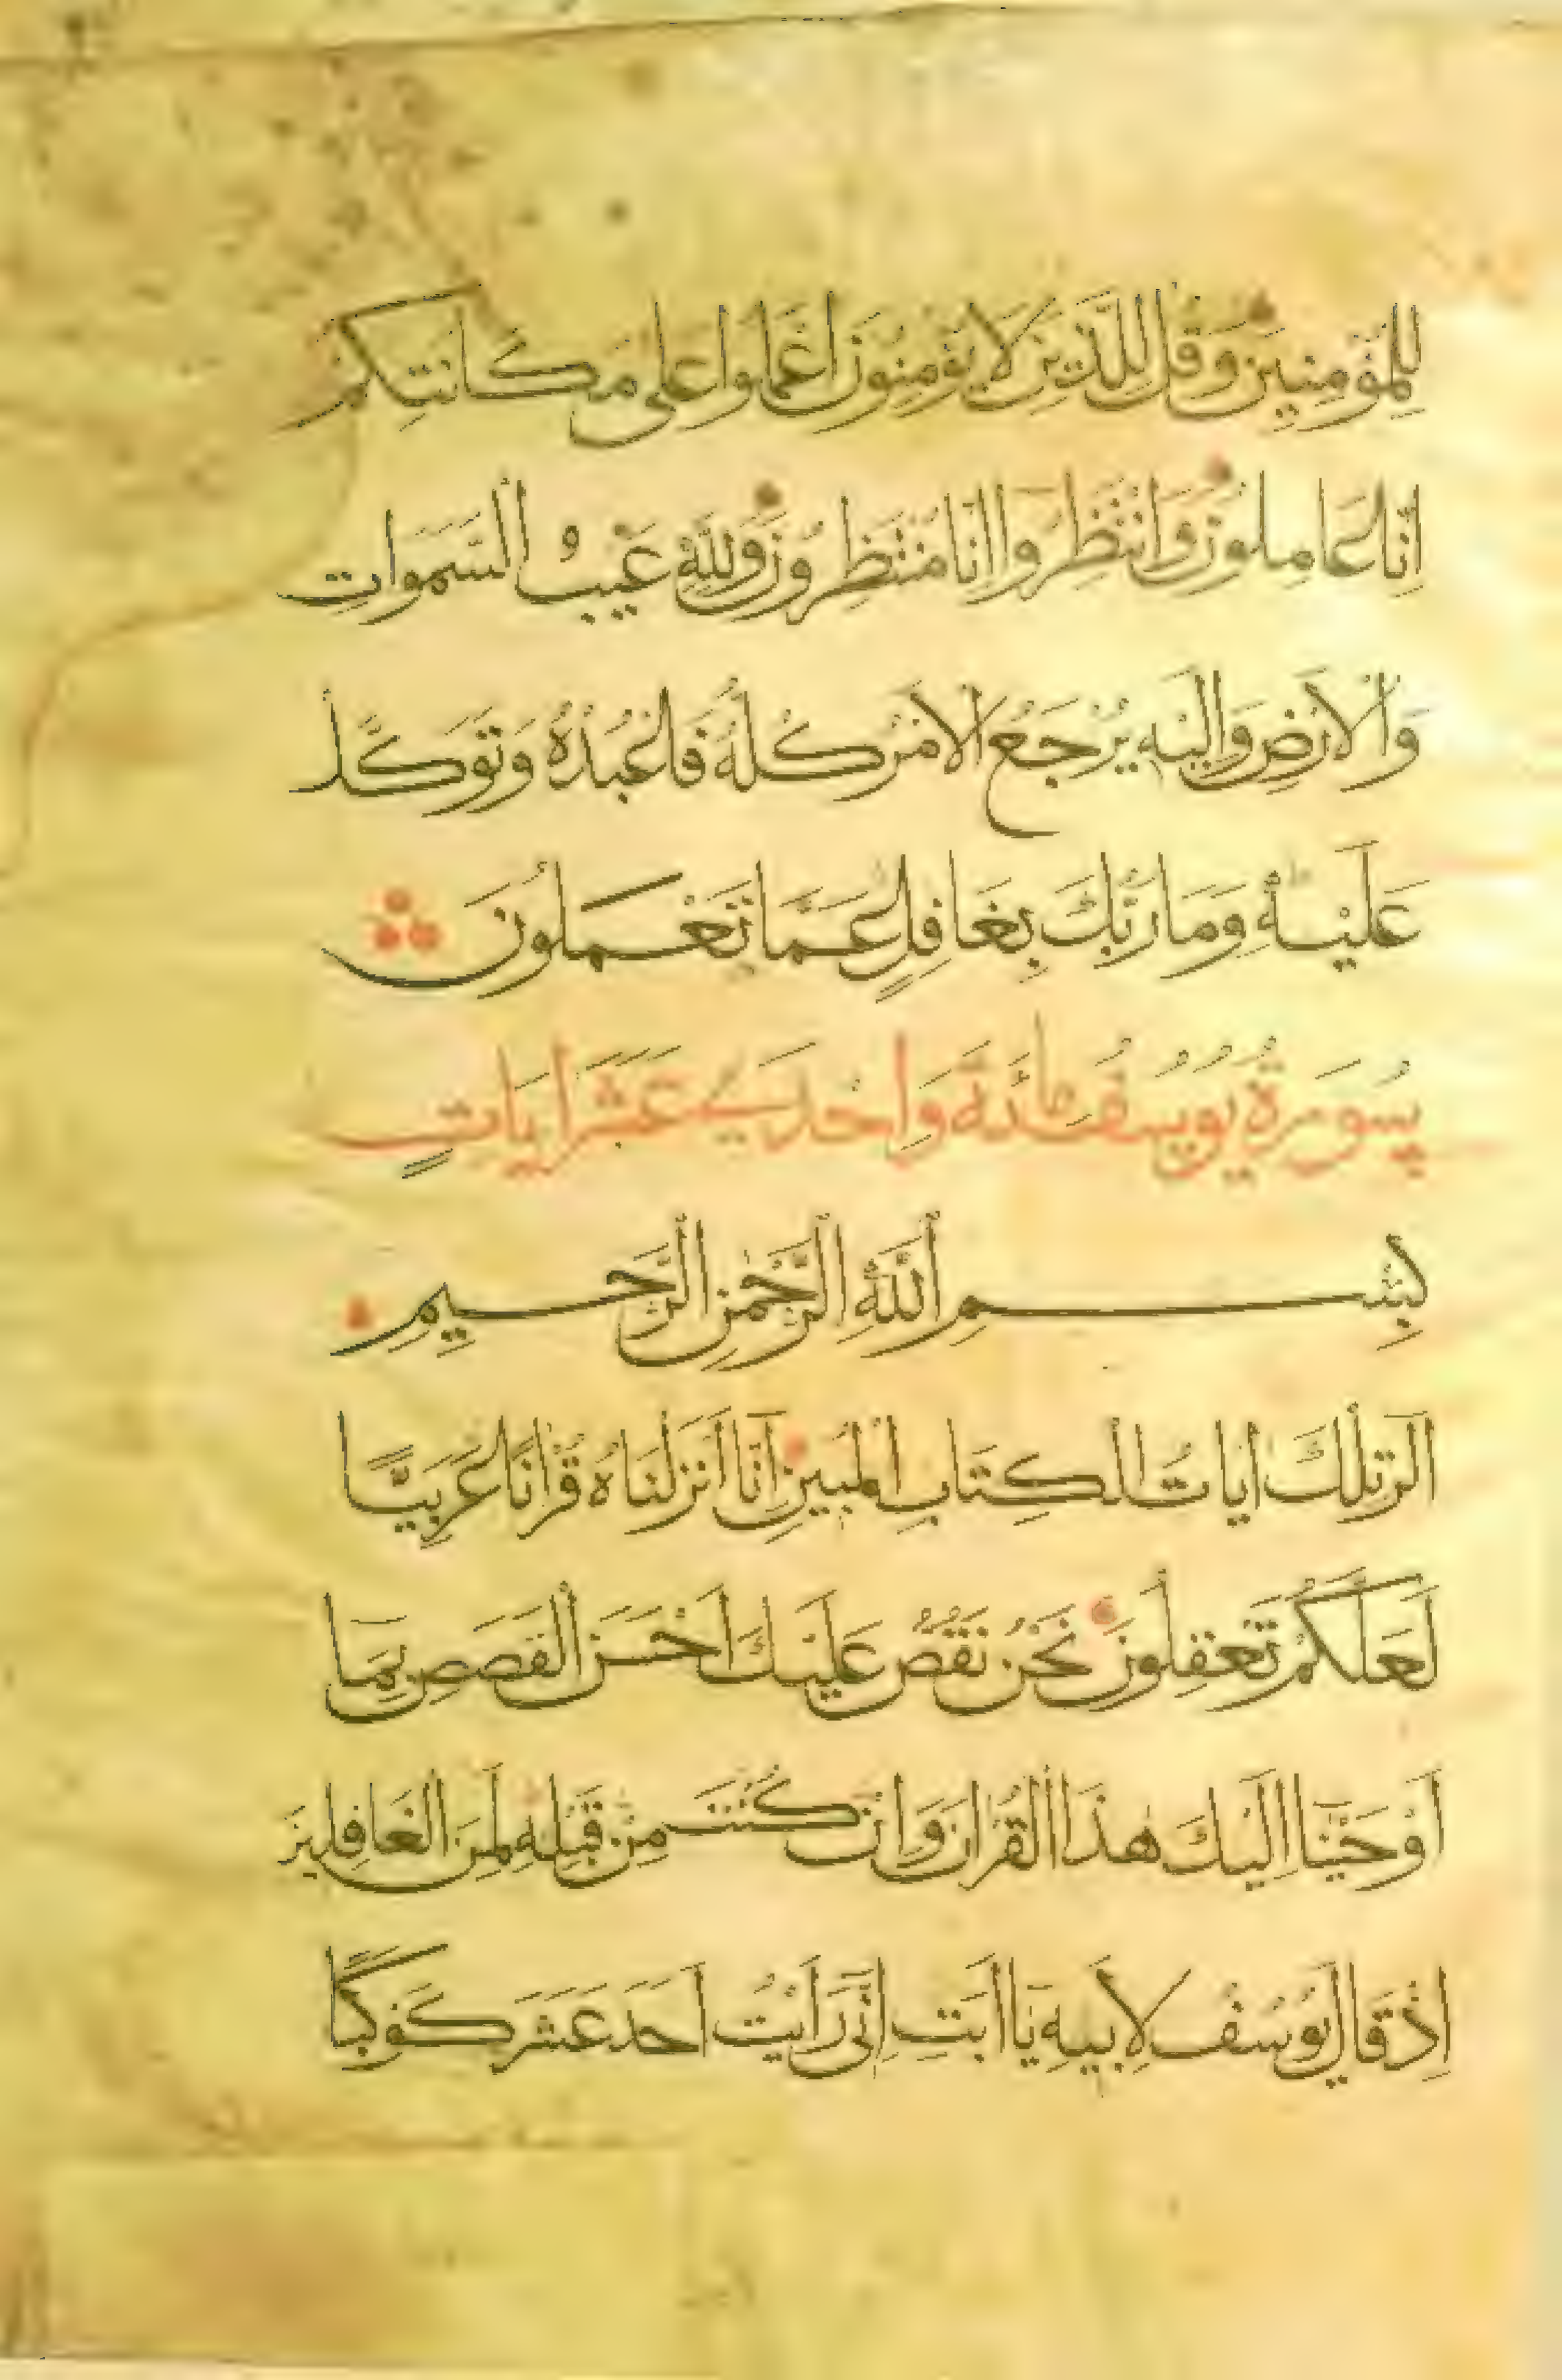 لِلْمُؤْمِنِينَ وَقُل لِلَّذِينَ لَا يُؤْمِنُونَ اعْمَلُوا عَلَى مَكَانَتِكُمْ
اِنَّا عَامِلُونَ وَانْتَظِرُوا اِنَّا مُنْتَظِرُونَ وَلِلَّهِ غَيْبُ السَّمَوَاتِ
وَالْاَرْضِ وَاِلَيْهِ يُرْجَعُ الْاَمْرُ كُلُّهُ فَاعْبُدْهُ وَتَوَكَّلْ
عَلَيْهِ وَمَا رَبُّكَ بِغَافِلٍ عَمَّا تَعْمَلُونَ
سُورَةُ يُوسُفُ مائَةَ وَاحْدَى عَشَرَ اٰيَاتٍ
بِسْمِ اللَّهِ الرَّحْمٰنِ الرَّحِيمِ
الر تِلْكَ اٰيَاتُ الْكِتَابِ الْمُبِينِ اِنَّا اَنْزَلْنَاهُ قُرْاٰنًا عَرَبِيًّا
لَعَلَّكُمْ تَعْقِلُونَ نَحْنُ نَقُصُّ عَلَيْكَ اَحْسَنَ الْقَصَصِ بِمَا
اَوْحَيْنَا اِلَيْكَ هٰذَا الْقُرْاٰنَ وَاِنْ كُنْتَ مِنْ قَبْلِهِ لَمِنَ الْغَافِلِينَ
اِذْ قَالَ يُوسُفُ لِاَبِيهِ يَا اَبَتِ اِنِّى رَاَيْتُ اَحَدَ عَشَرَ كَوْكَبًا